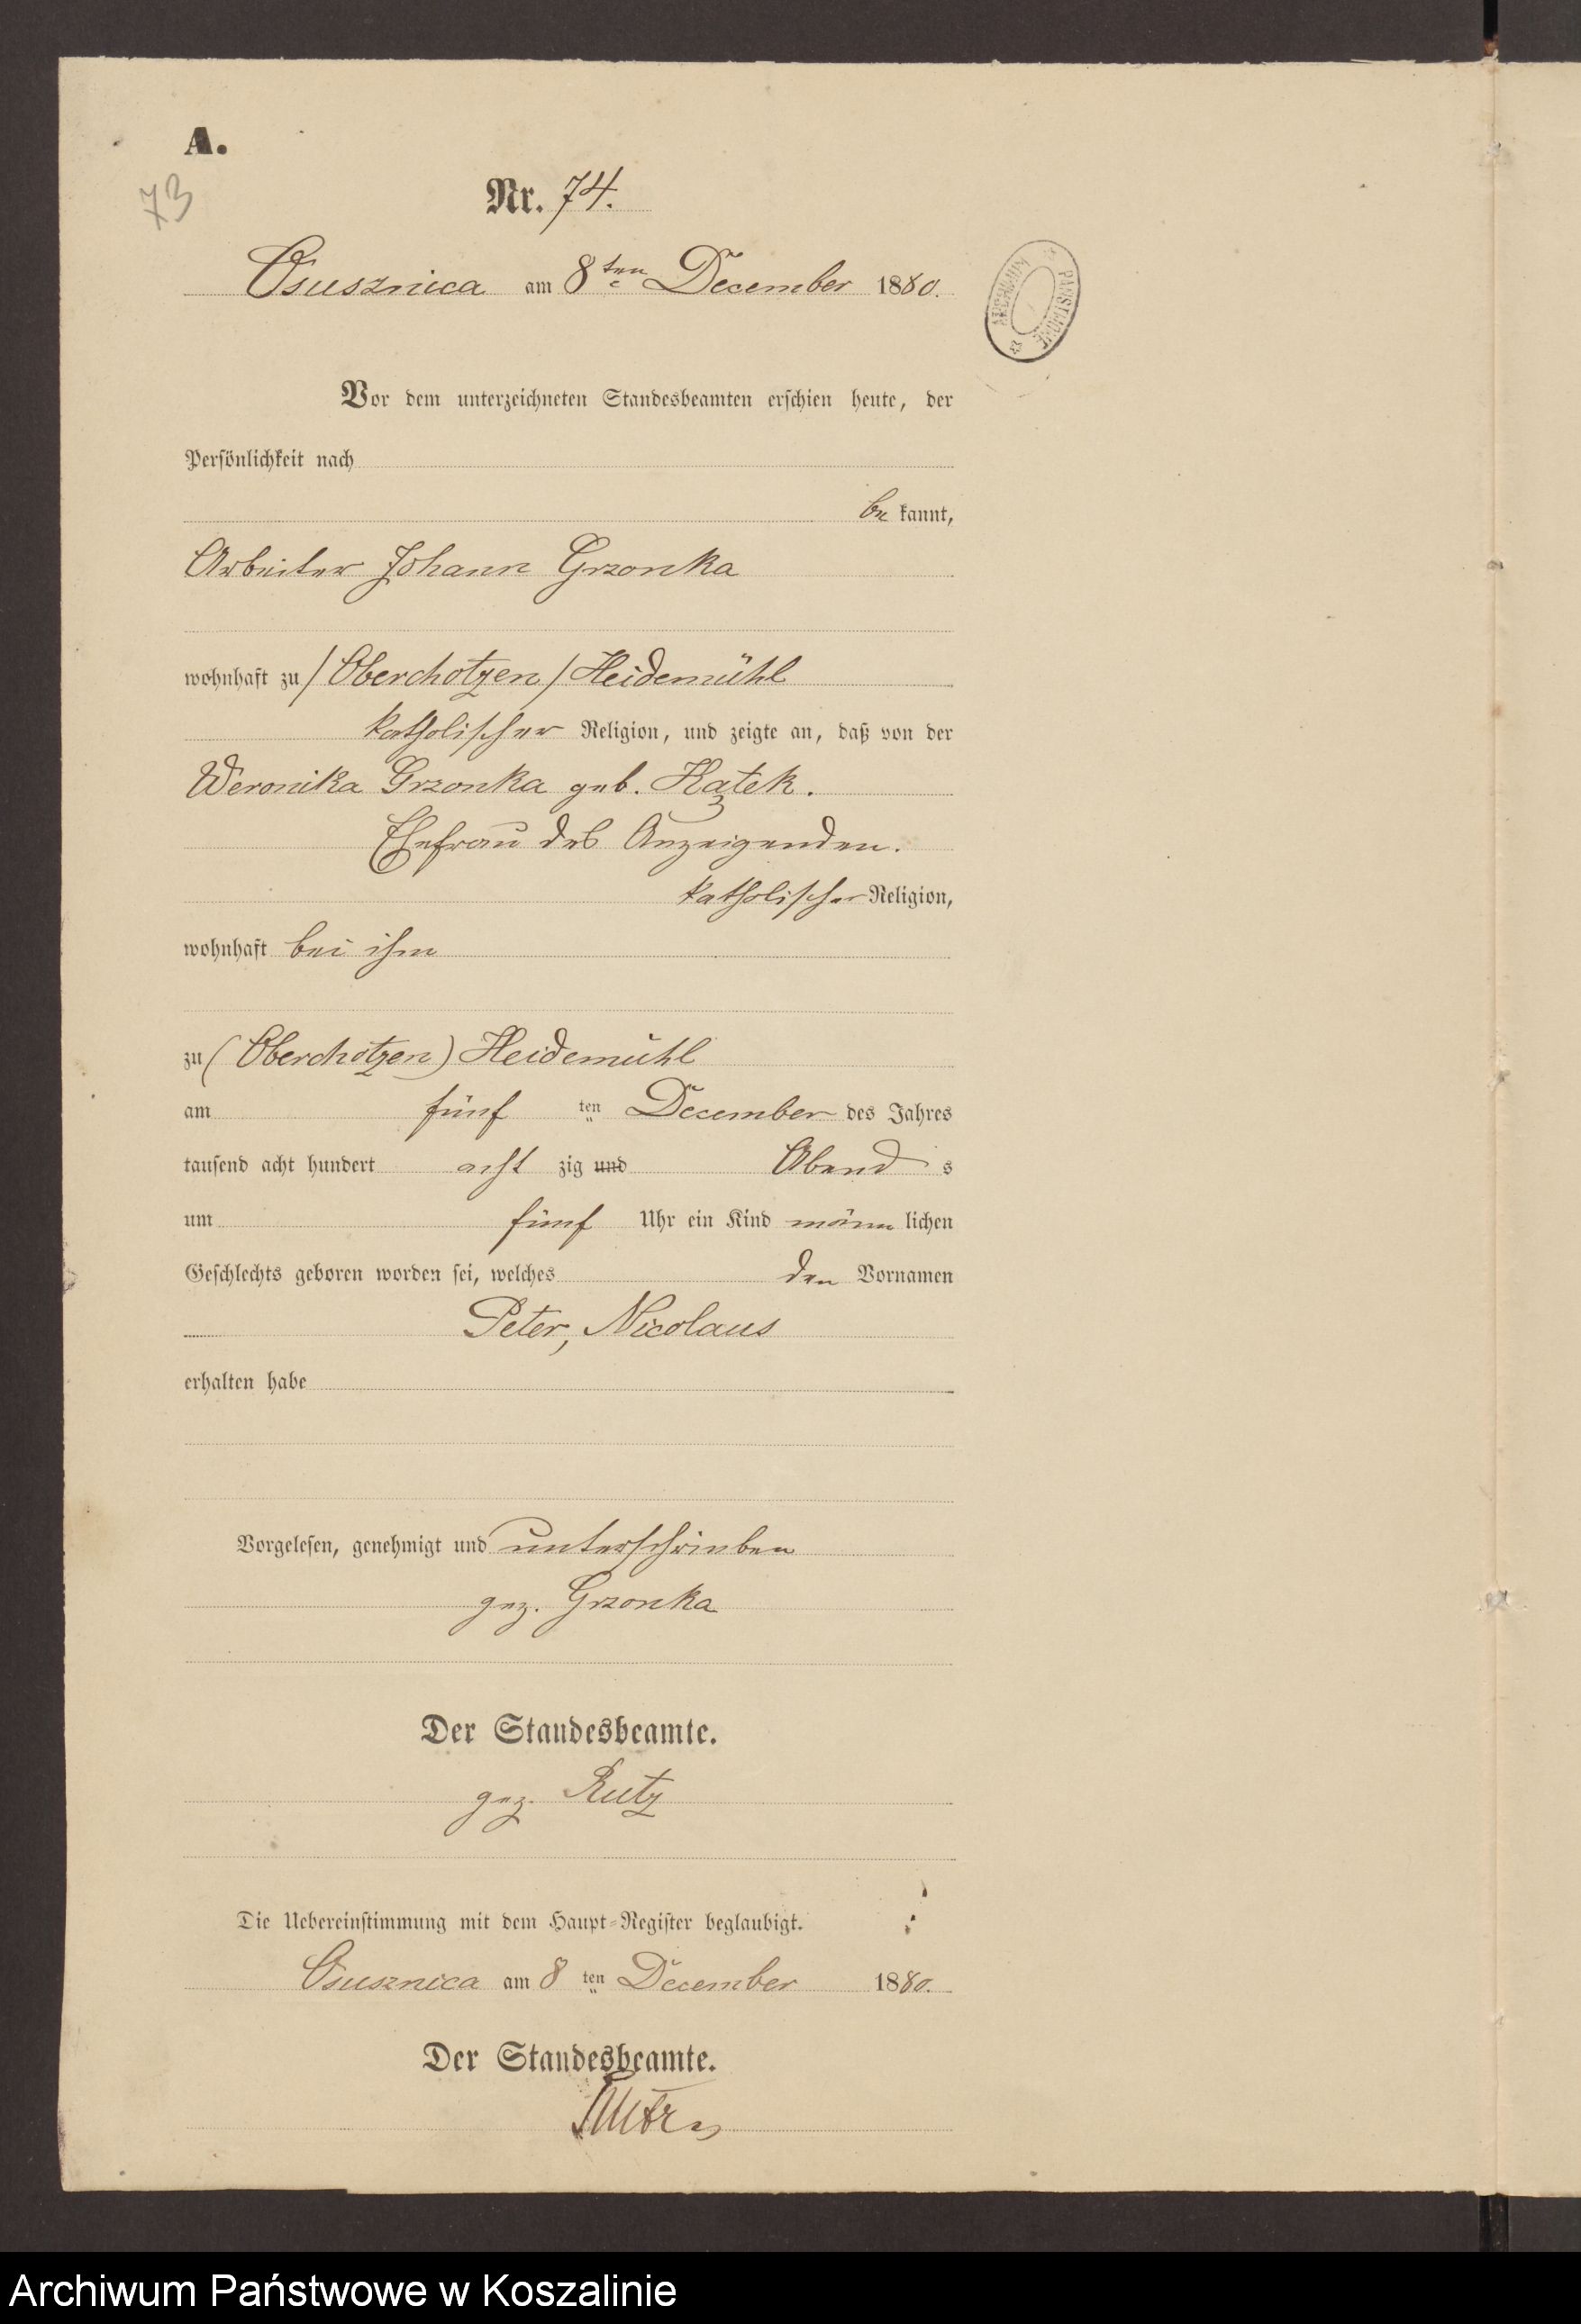 A.
73
Nr. 74.
Osusznica am 8ten December 1880.
ARCHIWUM PAŃSTWOWE
Vor dem unterzeichneten Standesbeamten erschien heute, der
Persönlichkeit nach
be kannt,
Arbeiter Johann Grzonka
wohnhaft zu / Oberchotzen / Heidemühl
katholischer Religion, und zeigte an, daß von der
Weronika Grzonka geb.
Ehefrau des Anzeigenden.
katholischer Religion,
wohnhaft bei ihm
zu ( Oberchotzen ) Heidemühl
am fünf ten December des Jahres
tausend acht hundert acht zig und Abend s
um fünf Uhr ein Kind männ lichen
Geschlechts geboren worden sei, welches den Vornamen
Peter, Nicolaus
erhalten habe
Vorgelesen, genehmigt und unterschrieben
gez. Grzonka
Der Standesbeamte.
gez. Rutz
Die Uebereinstimmung mit dem Haupt-Register beglaubigt.
Osusznica am 8 ten December 1880.
Der Standesbeamte.
Archiwum Państwowe w Koszalinie